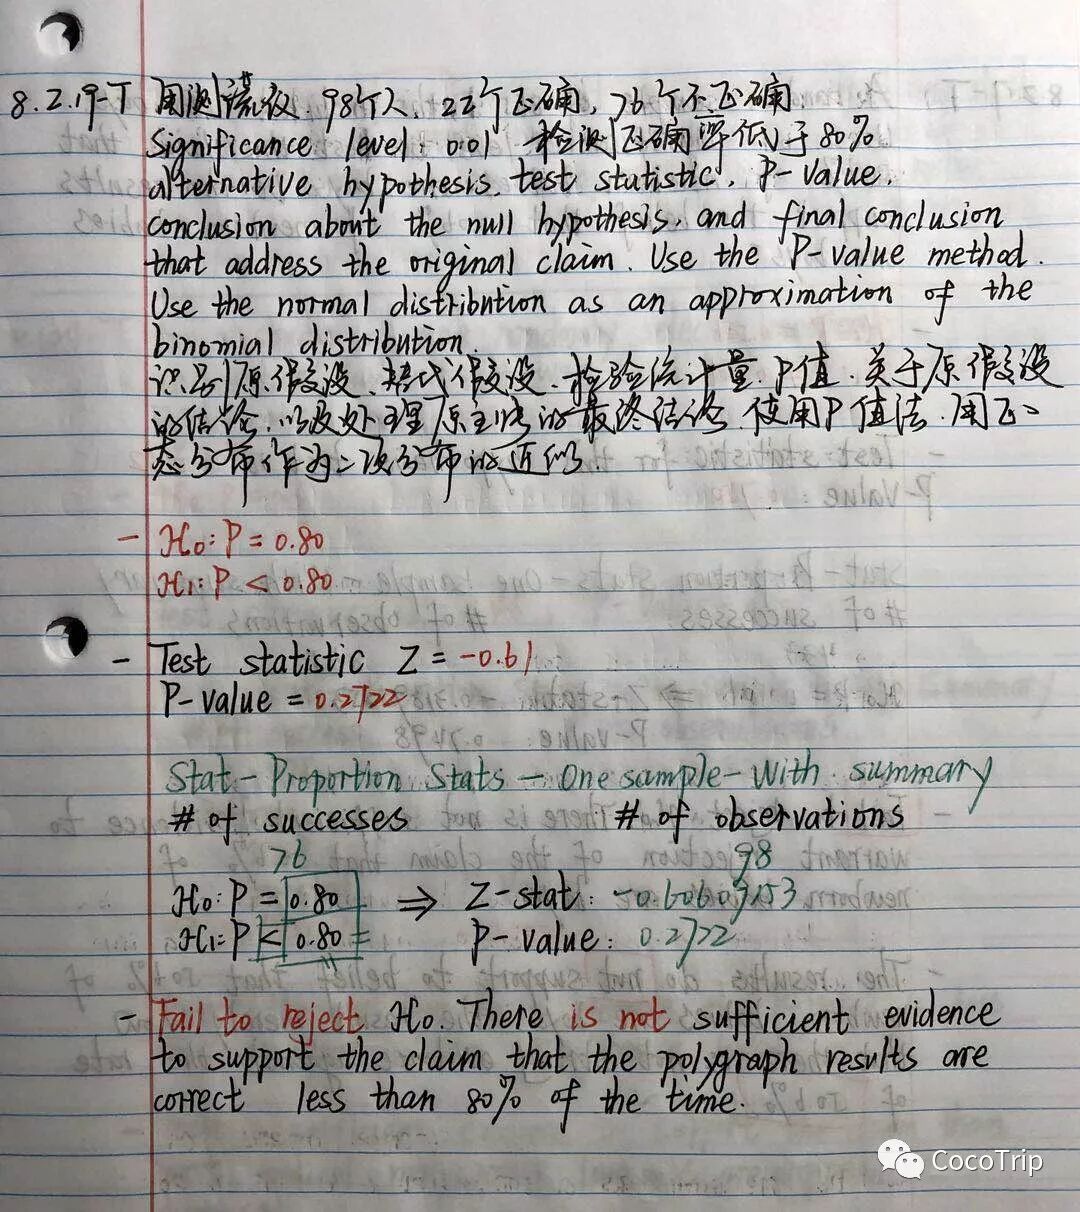 8.2.19-T 用测谎仪, 98个人, 22个正确, 76个不正确
Significance level: 0.01 检测正确率低于80%
alternative hypothesis, test statistic, P-value,
conclusion about the null hypothesis, and final conclusion
that address the original claim. Use the P-value method.
Use the normal distribution as an approximation of the
binomial distribution.
识别原假设、替代假设、检验统计量、P值、关于原假设
的结论,以及处理原主张的最终结论,使用P值法,用正
态分布作为二项分布的近似.
- H₀: P = 0.80
H₁: P < 0.80
- Test statistic Z = -0.61
P-value = 0.2722
Stat - Proportion Stats - One sample - With summary
# of successes # of observations
76 98
H₀: P = 0.80 ⇒ Z-stat: -0.60609153
H₁: P < 0.80 P-value: 0.2722
- Fail to reject H₀. There is not sufficient evidence
to support the claim that the polygraph results are
correct less than 80% of the time.
CocoTrip